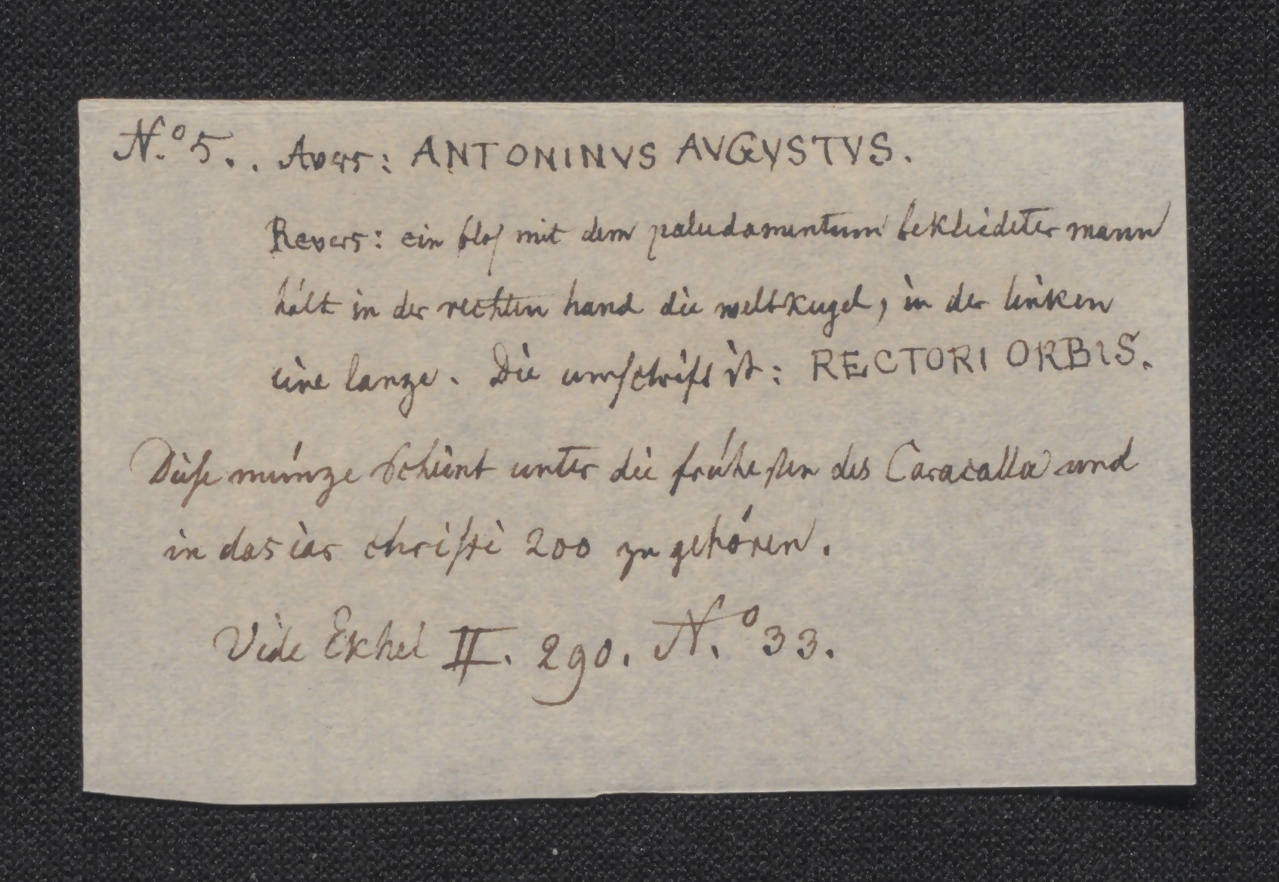 N.º 5. . Avers: ANTONINVS AVGVSTVS.
Revers: ein blos mit dem paludamentum bekleideter mann
hält in der rechten hand die weltkugel, in der linken
eine lanze. Die umschrift ist: RECTORI ORBIS.
Diese münze scheint unter die frühesten des Caracalla und
in das iar christi 200 zu gehören.
Vide Ekhel II. 290. N.º 33.